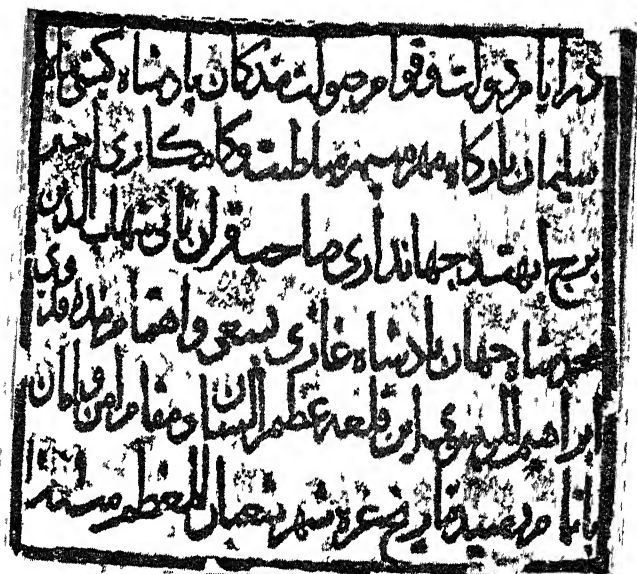 در ایام دولت و قوام صولت بندکان بادشاه کیتی پناه
سلیمان بارکاه مهر سپهر سلطنت و کامکاری اختر
برج ابهت و جهانداری صاحب قران ثانی شهاب الدین
محمد شاه جهان بادشاه غازی بسعی و اهتمام فدوی
ابراهیم الموسوی این قلعه عظیم البنیان و مقام امن و امان
باتمام رسید بتاریخ غره شهر شعبان المعظم سنه